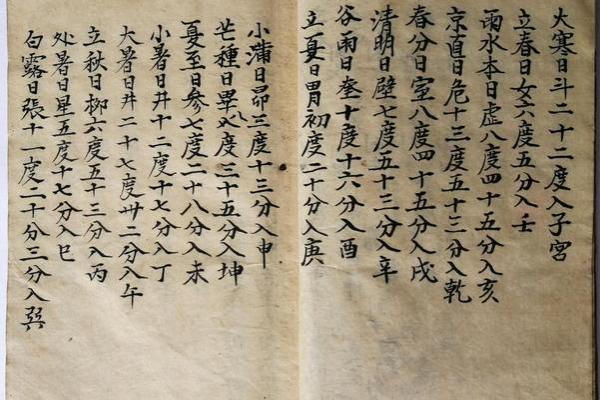 大寒日斗二十二度入子宮
立春日女六度五分入壬
雨水本日虛八度四十五分入亥
京直日危十三度五十三分入乾
春分日室八度四十五分入戌
清明日壁七度五十三分入辛
谷雨日奎十度十六分入酉
立夏日胃初度二十分入庚
小蒲日昴三度十三分入申
芒種日畢八度三十五分入坤
夏至日參七度二十八分入未
小暑日井十二度十七分入丁
大暑日井二十七度卅二分入午
立秋日柳六度五十三分入丙
处暑日星五度十七分入巳
白露日張十一度二十分三分入巽